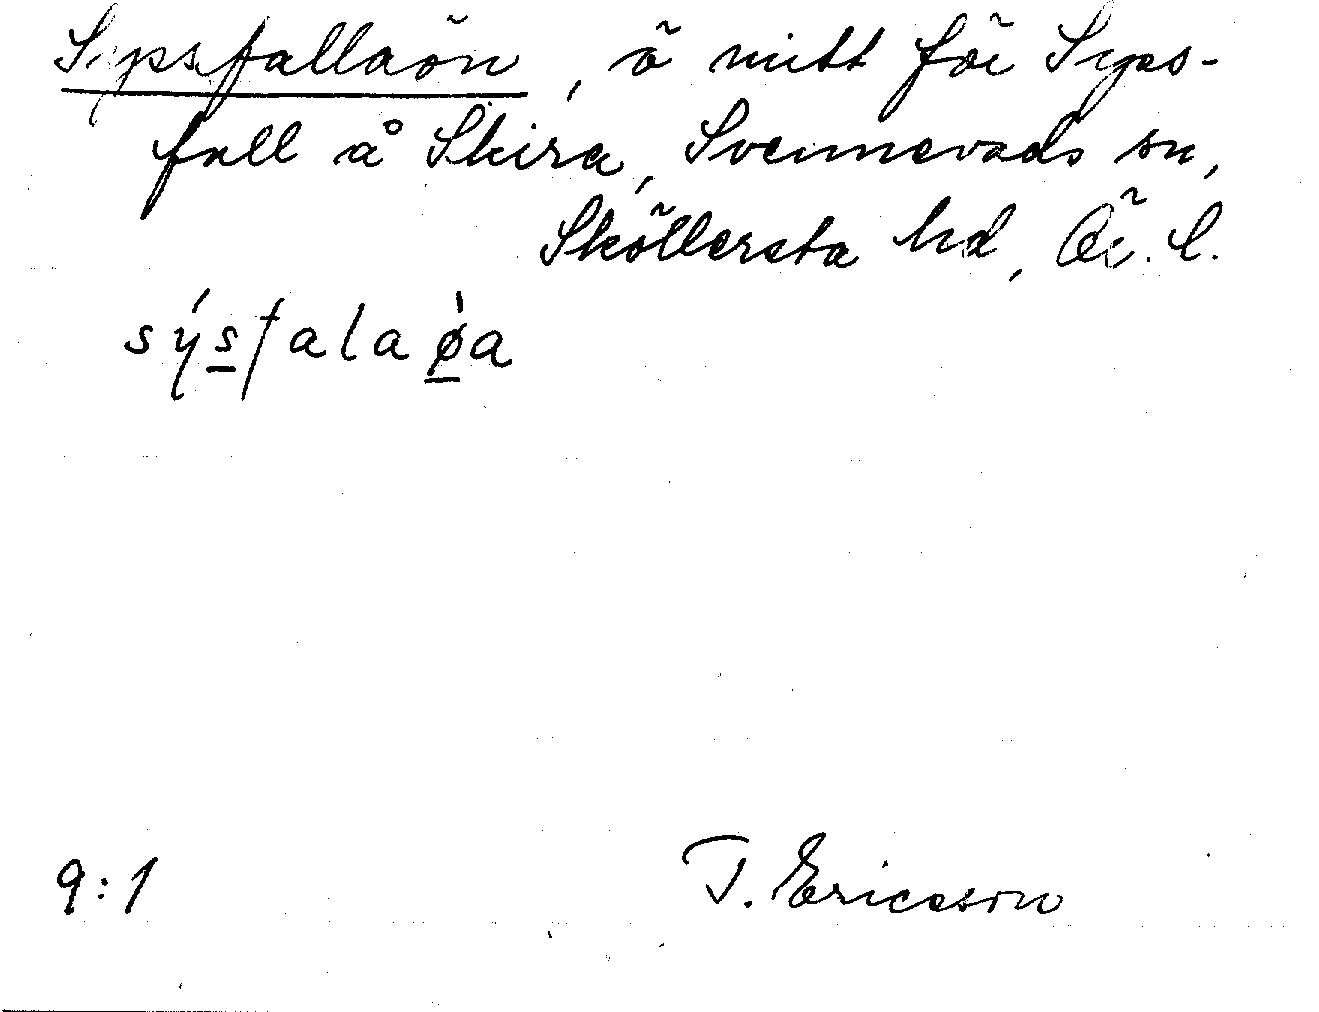 Sypsfallaön, ö mitt för Syps-
fall å Skira, Svennevads sn,
Sköllersta hd, Ör. l.
sýsfalaøa
9:1 T. Ericsson